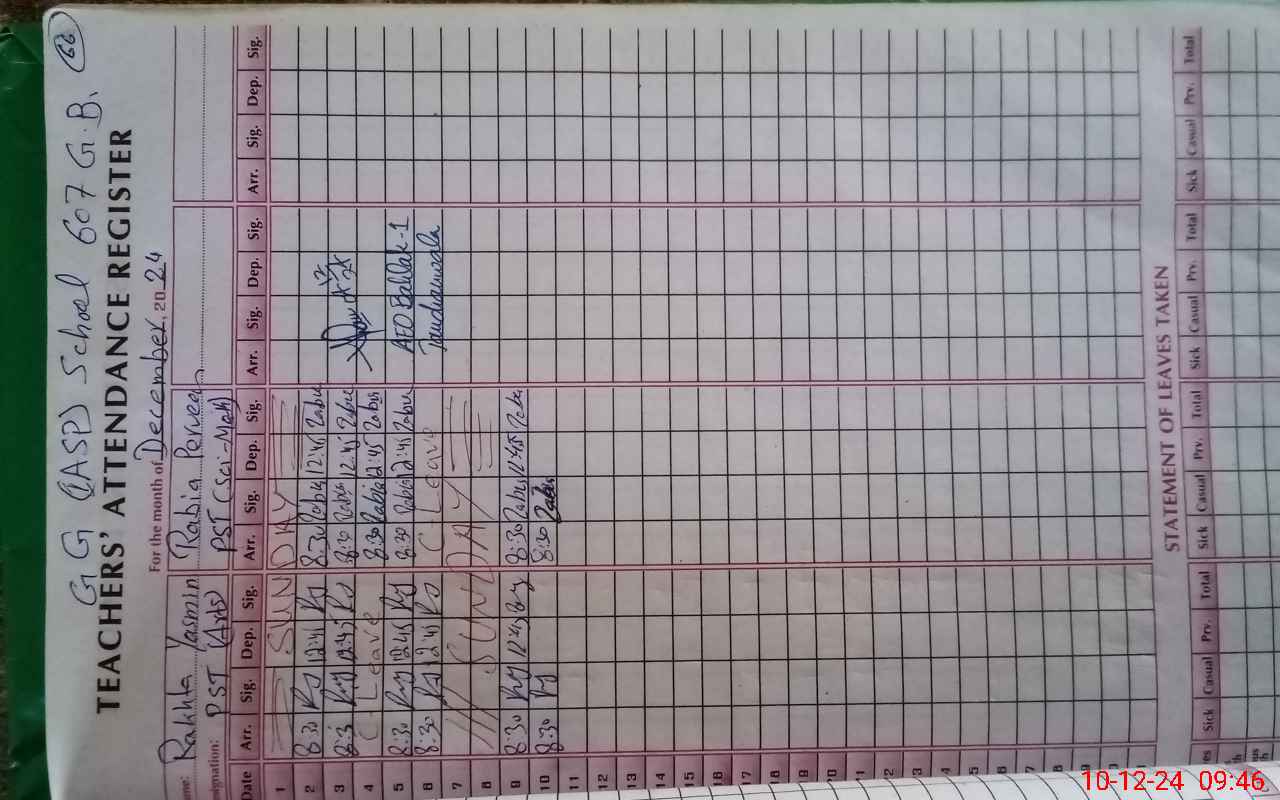 G G (QASP) School 607 G.B. 66
TEACHERS' ATTENDANCE REGISTER
For the month of December, 2024
me: Rakhta Yasmin Rabia Perveen
signation: PST (Arts) PST (Sci-Math)
Date Arr. Sig. Dep. Sig. Arr. Sig. Dep. Sig. Arr. Sig. Dep. Sig. Arr. Sig. Dep. Sig.
1 SUNDAY
2 8:30 12:45 8:30 12:45
3 8:30 12:45 8:30 12:45
4 C. Leave 8:30 Rabia 12:45
5 8:30 12:45 8:30 Rabia 12:45 AEO Bahlak-1
6 8:30 12:45 C. Leave Tandianwala
7 SUNDAY
8
9 8:30 12:45 8:30 12:45
10 8:30 8:30
11
12
13
14
15
16
17
18
19
20
21
22
3
4
5
6
7
8
9
0
STATEMENT OF LEAVES TAKEN
es Sick Casual Prv. Total Sick Casual Prv. Total Sick Casual Prv. Total Sick Casual Prv. Total
10-12-24 09:46